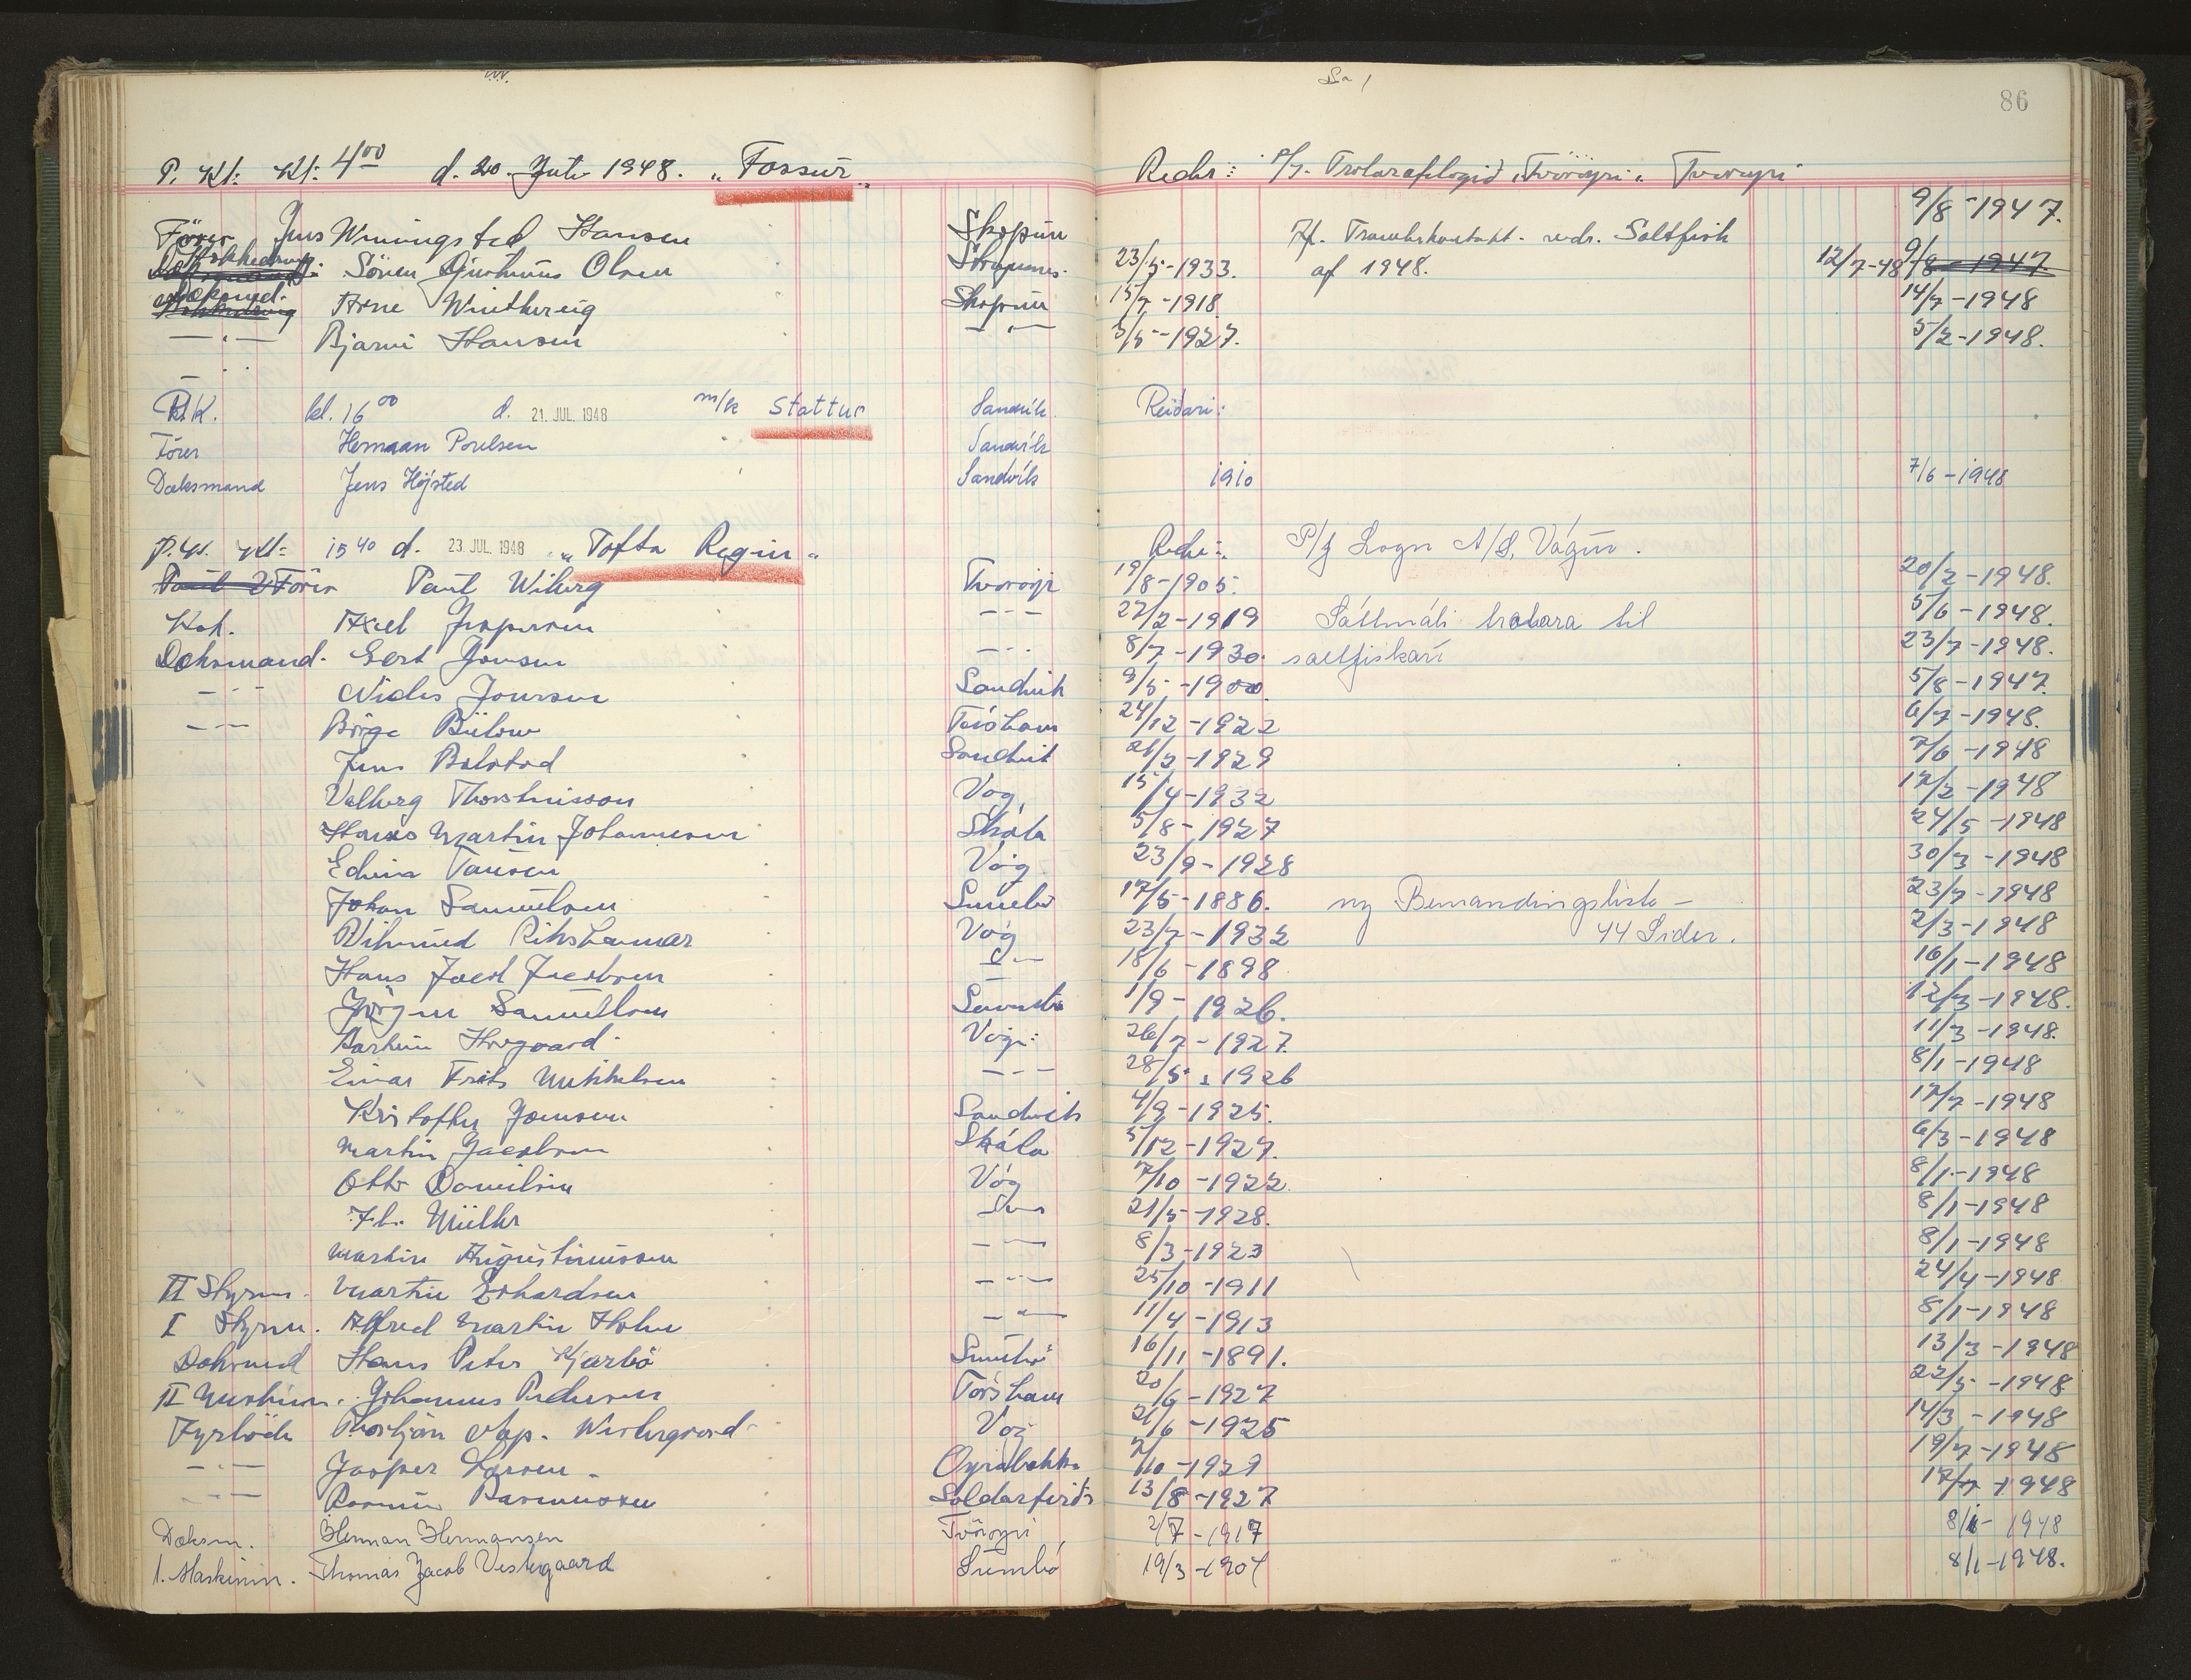 86
P. Kl: Kl: 4⁰⁰ d. 20. Juli 1948. "Fossur" Redr: P/f. Trolarafelagid "Tvöroyri" Tvöroyri
Förer Jens Winningsted Hansen Skopun Hf. Trawlerkontrakt. vedr. Saltfish 9/8-1947.
Kokkedreng Sören Olsen 23/5-1933. af 1948. 12/7-48 9/8-1947
Dæksmd. Arne Winthereig Skopun 15/7-1918 14/7-1948
—"— Bjarni Hansen —"— 3/5-1927. 5/2-1948.
P.K. kl. 16⁰⁰ d. 21. JUL. 1948 m/k Stattur Sandvík Reiðari:
Förer Hermann Poulsen Sandvík
Dæksmand Jens Højsted Sandvík 1910 7/6-1948
P.kl. Kl: 15⁴⁰ d. 23. JUL. 1948 "Tofta Regin" Redr: P/f Logn A/S, Vágur.
Förer Paul Wiberg Tvöroyr 19/8-1905. 20/2-1948.
Kok. Axel Jespersen —"— 27/2-1919 Sáttmáli trolara til 5/6-1948.
Dæksmand. Gert Jensen —"— 8/7-1930. saltfiskarí 23/7-1948.
—"— Niels Joensen Sandvik 9/5-1900. 5/8-1947.
—"— Börge Bülow Tórshavn 24/12-1922 6/7-1948.
Jens Bolstad Sandvik 21/2-1929 7/6-1948
Valberg Thorsteinsson Vág 15/4-1932 17/2-1948
Hans Martin Johannesen Skála 5/8-1927 24/5-1948
Edvin Tausen Vág 23/9-1928 30/3-1948
Johan Samuelsen Sumbö 17/5-1886. ny Bemandingsliste — 23/7-1948
Vilmund Rikshamar Vág 23/7-1932 44 Sider. 2/3-1948
Hans Jacob Jacobsen —"— 18/6-1898 16/1-1948
Jörgen Samuelsen Sumbö 1/9-1926. 12/3-1948.
Hovgaard. Vági: 26/7-1927. 11/3-1948.
Einar Frits Mikkelsen —"— 28/5-1926 8/1-1948
Kristoffer Joensen Sandvik 4/9-1925. 17/7-1948
Martin Jacobsen Skála 5/12-1927. 6/3-1948
Otto Danielsen Vág 7/10-1922. 8/1-1948
Müller —"— 21/5-1928. 8/1-1948
Martin Augustinussen —"— 8/3-1923 8/1-1948
II Styrm. Martin Erhardsen —"— 25/10-1911 24/4-1948
I Styrm. Alfred Martin Holm —"— 11/4-1913 8/1-1948
Dæksmd Hans Peter Kjærbö Sumbö 16/11-1891. 13/3-1948
II Maskinm. Johannus Pedersen Tórshavn 20/6-1927 22/5-1948
Fyrböder Thorbjörn Nap. Westergaard Vág 21/6-1925 14/3-1948
—"— Jasper Larsen. Oyrabakka 7/10-1929 19/7-1948
—"— Rasmus Rasmussen Söldarfirði 13/8-1927 17/7-1948
Dæksm. Herman Hermansen Tvöroyri 2/7-1917 8/1-1948
1. Maskinm. Thomas Jacob Vestergaard Sumbö 19/3-1904 8/1-1948.